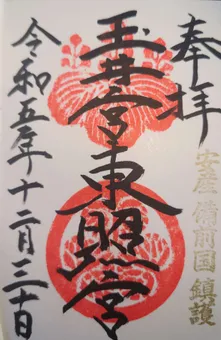 奉拝
安産 備前国 鎮護
玉井宮東照宮
令和五年十二月三十日